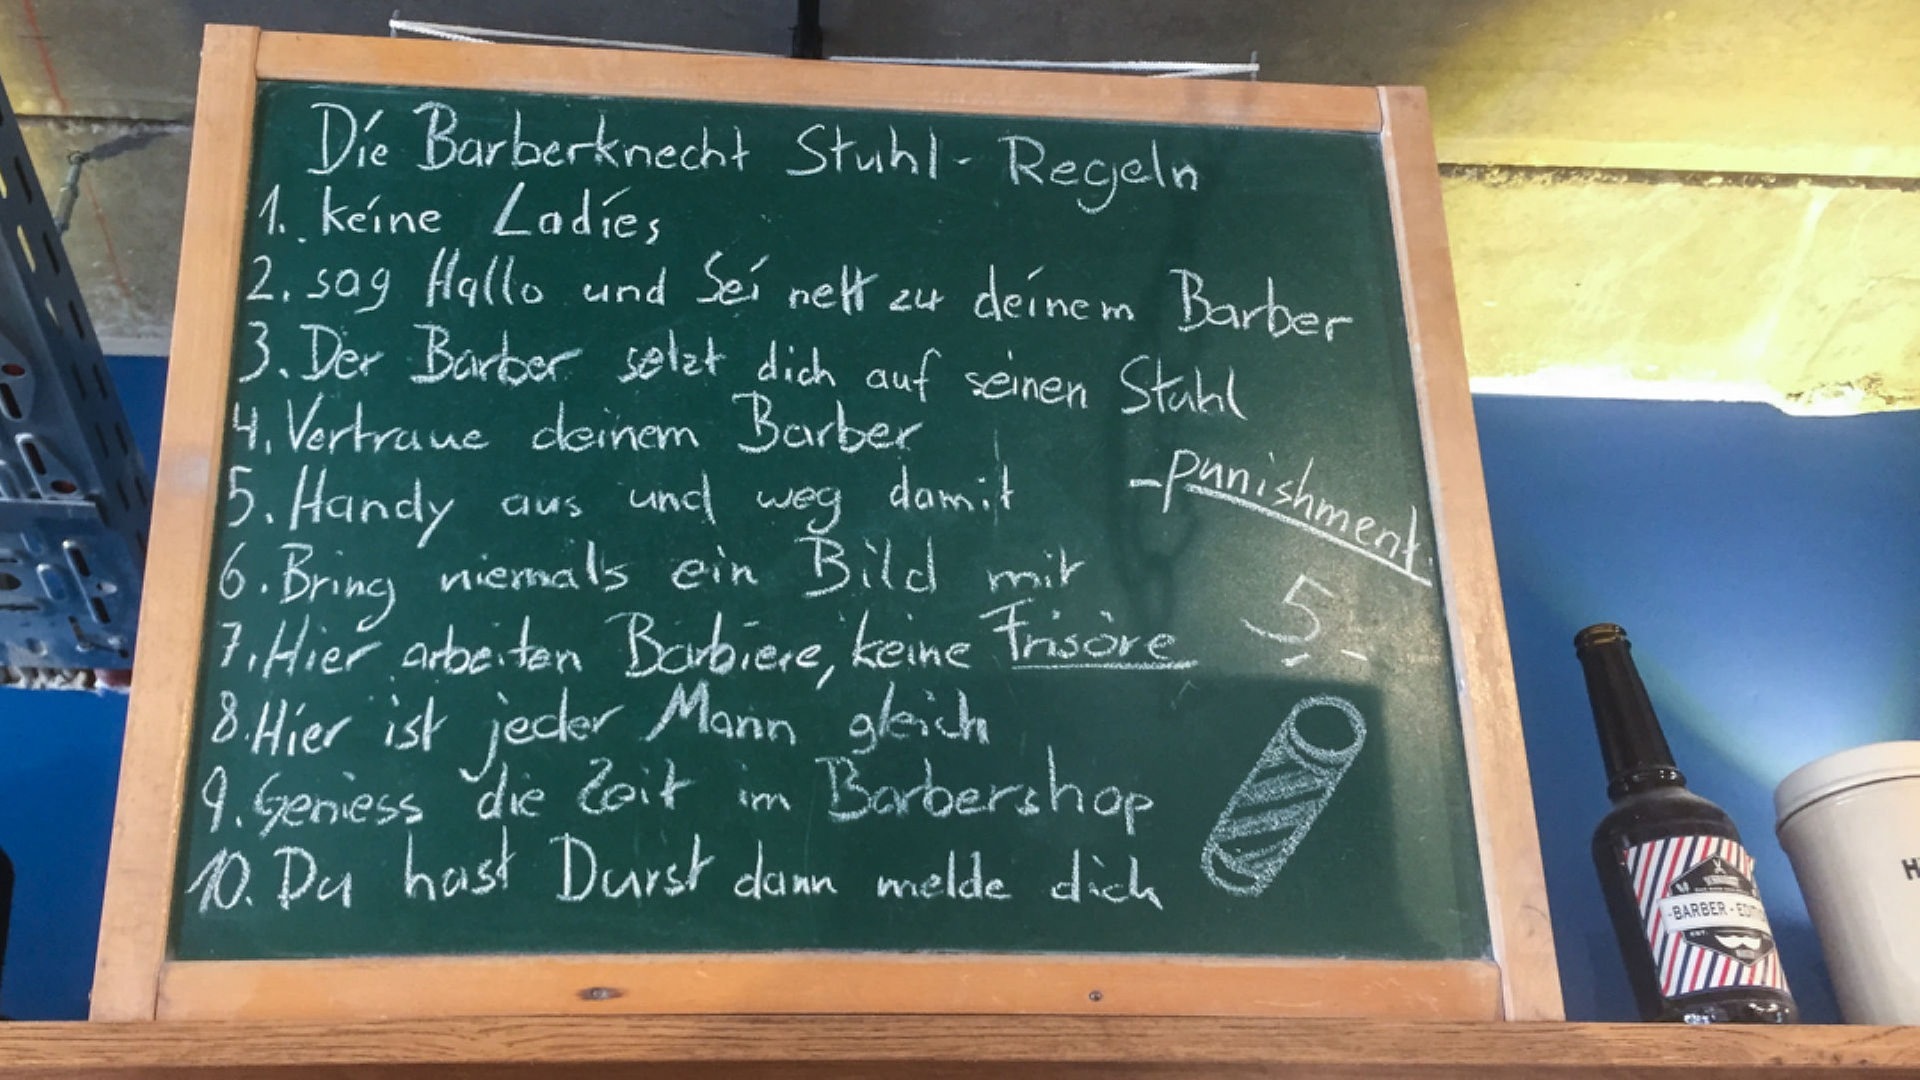 Die Barberknecht Stuhl-Regeln
1. keine Ladies
2. sag Hallo und Sei nett zu deinem Barber
3. Der Barber setzt dich auf seinen Stuhl
4. Vertraue deinem Barber
5. Handy aus und weg damit
-punishment.
5,-
6. Bring niemals ein Bild mit
7. Hier arbeiten Barbiere, keine Frisöre
8. Hier ist jeder Mann gleich
9. Geniess die Zeit im Barbershop
10. Du hast Durst dann melde dich
-BARBER-
H